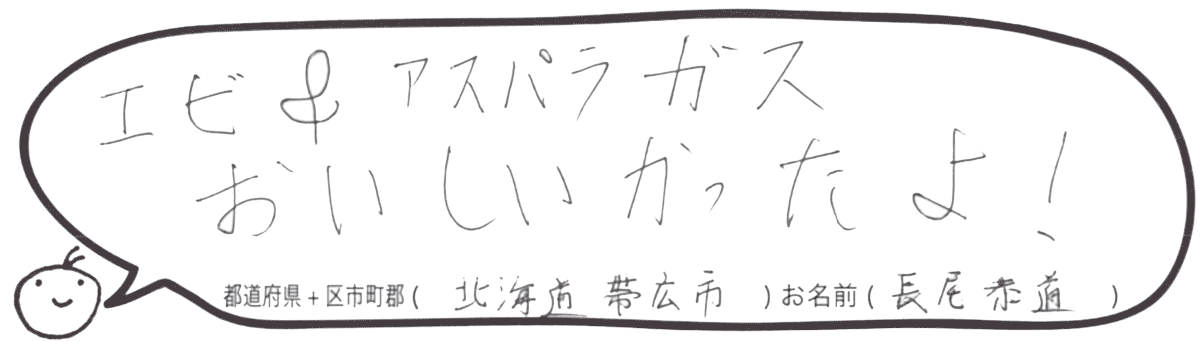 エビ & アスパラガス
おいしいかったよ!
都道府県+区市町郡(北海道 帯広市)お名前(長尾恭道)